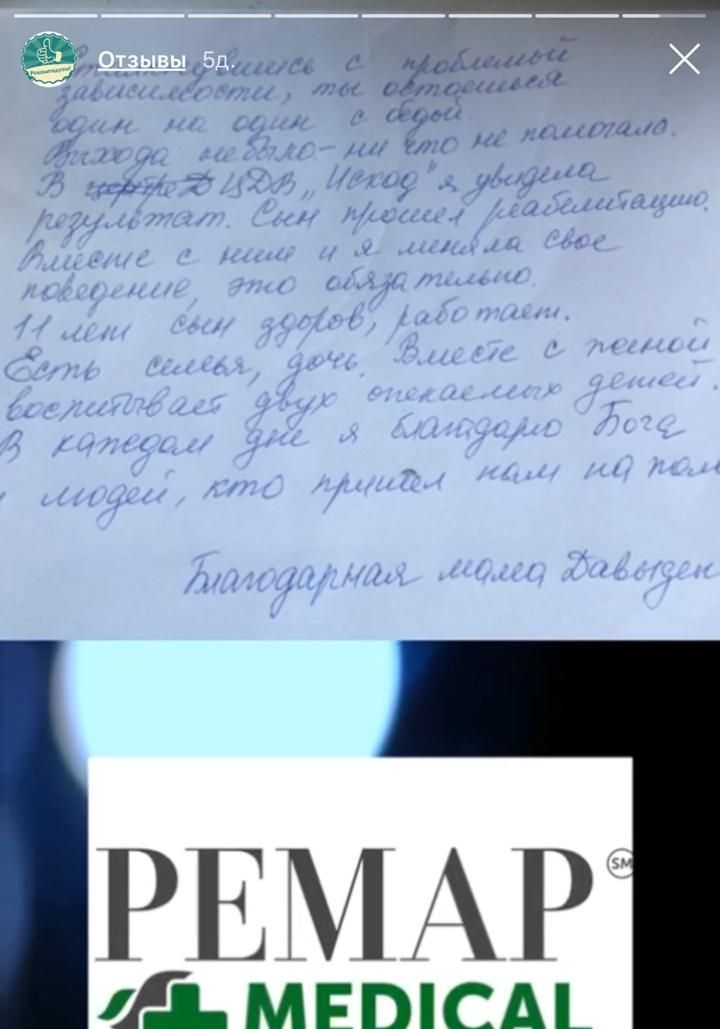 Отзывы 5д.
Рекомендуем!
Столкнувшись с проблемый
зависимости, ты остаешься
один на один с бедой.
Выхода небыло - ни что не помогало.
В центре ЦДВ „Исход" я увидела
результат. Сын прошел реабелитацию.
Вместе с ним и я меняла свое
поведение, это обязательно.
11 лет сын здоров, работает.
Есть семья, дочь. Вместе с женой
воспитывает двух опекаемых детей.
В каждом дне я благодарю Бога
и людей, кто пришел нам на пом
Благодарная мама Давыден
РЕМАР SM
MEDICAL